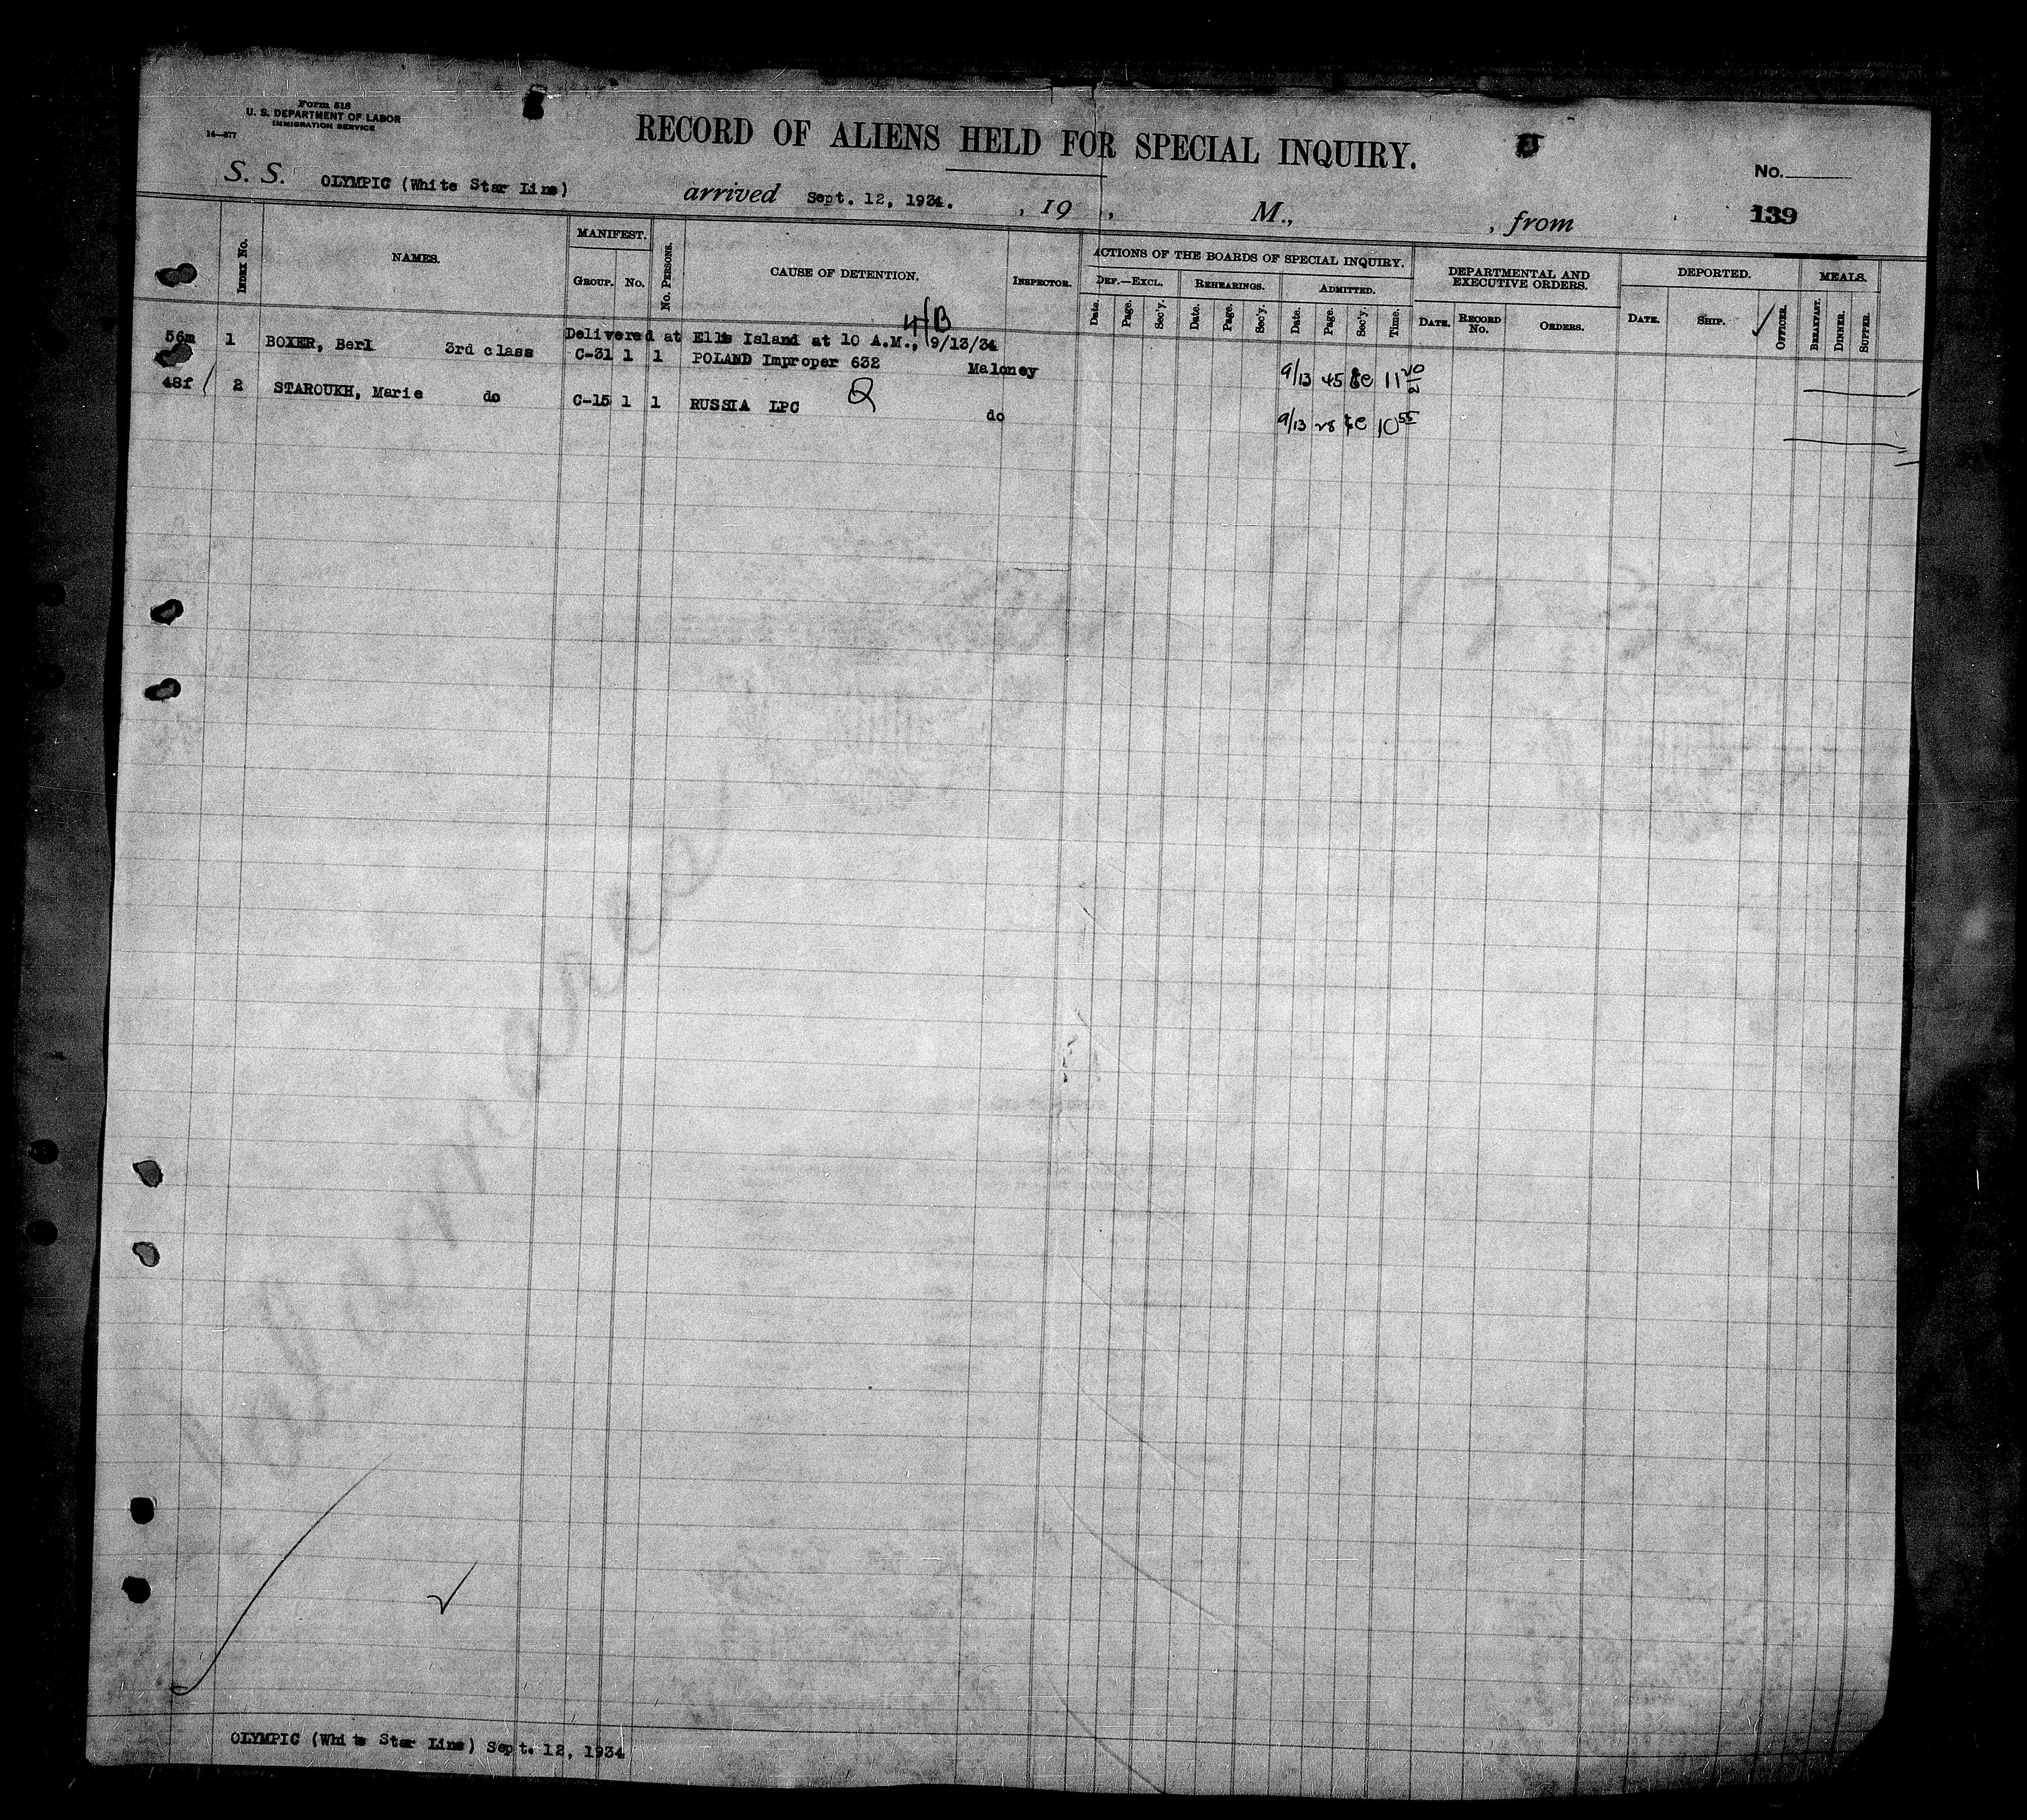 Form 518
U. S. DEPARTMENT OF LABOR
IMMIGRATION SERVICE
14—577
RECORD OF ALIENS HELD FOR SPECIAL INQUIRY.
No.
S. S. OLYMPIC (White Star Line) arrived Sept. 12, 1934. , 19 , M., , from
139
INDEX No. NAMES. MANIFEST. No. PERSONS. CAUSE OF DETENTION. INSPECTOR. ACTIONS OF THE BOARDS OF SPECIAL INQUIRY. DEPARTMENTAL AND EXECUTIVE ORDERS. DEPORTED. MEALS.
GROUP. No. DEF.—EXCL. REHEARINGS. ADMITTED.
Date. Page. Sec'y. Date. Page. Sec'y. Date. Page. Sec'y. Time. DATE. RECORD No. ORDERS. DATE. SHIP. OFFICER. BREAKFAST. DINNER. SUPPER.
Delivered at Ellis Island at 10 A.M., 9/13/34
56m 1 BOXER, Berl 3rd class C-31 1 1 POLAND Improper 632 Maloney 9/13 45 11
48f 2 STAROUKH, Marie do C-15 1 1 RUSSIA LPC Q do 9/13 28 10 55
OLYMPIC (White Star Line) Sept. 12, 1934